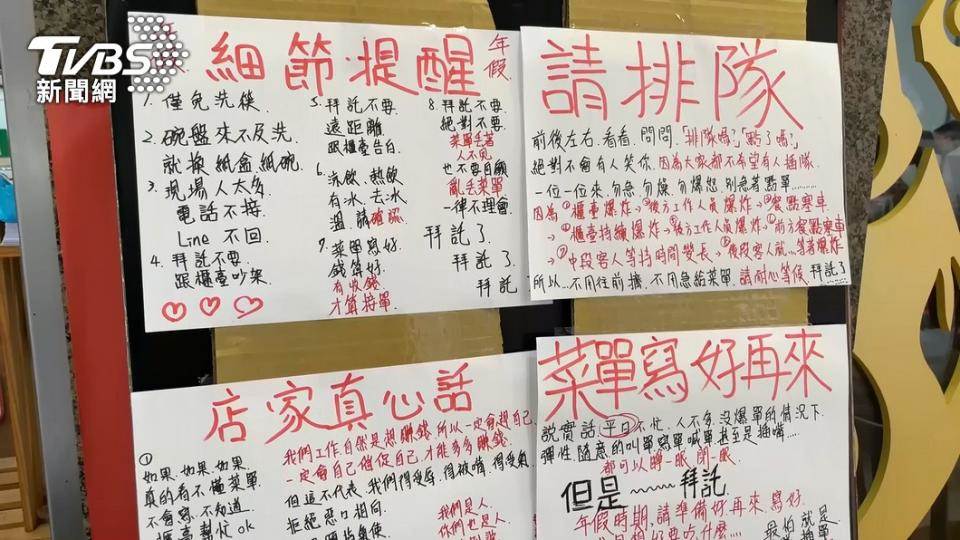 TVBS
新聞網
細節提醒
年假
1. 僅免洗筷
2. 碗盤來不及洗
就換紙盒.紙碗.
3. 現場人太多
電話不接.
Line 不回.
4. 拜託不要
跟櫃臺吵架
5. 拜託不要
遠距離
跟櫃臺告白
6. 冷飲、熱飲
有冰、去冰
溫 請確認
7. 菜單寫好.
錢算好.
有收錢.
才算接單.
8. 拜託不要.
絕對不要.
菜單丟著
人不見
也不要自顧
亂丟菜單
一律不理會
拜託了.
拜託了.
拜託
請排隊
前後左右.看看.問問.「排隊嗎?」「點了嗎?」
絕對不會有人笑你.因為大家都不希望有人插隊.
一位一位來.勿急.勿燥.勿爆怒.別急著點單……
因為①櫃臺爆炸→②後方工作人員爆炸→③餐點塞車
→④櫃臺持續爆炸→⑤後方工作人員爆炸→⑥前方餐點塞車
→⑦中段客人等待時間變長→⑧後段客人就…等著爆炸
所以…不用往前擠.不用急給菜單.請耐心等候.拜託了
店家真心話
①
如果.如果.如果.
真的看不懂菜單
不會寫.不知道
櫃臺幫忙ok
我們工作自然是想賺錢.所以一定會趕自己
一定會自己催促自己.才能多多賺錢.
但這不代表.我們得受辱.得被嗆.得受氣
拒絕惡口相向.
我們是人.
你們也是人
菜單寫好再來
說實話.平日不忙.人不多.沒爆單的情況下.
彈性隨意的叫單寫單喊單甚至是插嘴……
都可以睜一眼 閉一眼.
但是~~~~拜託
年假時期.請準備好再來.寫好.
最怕就是